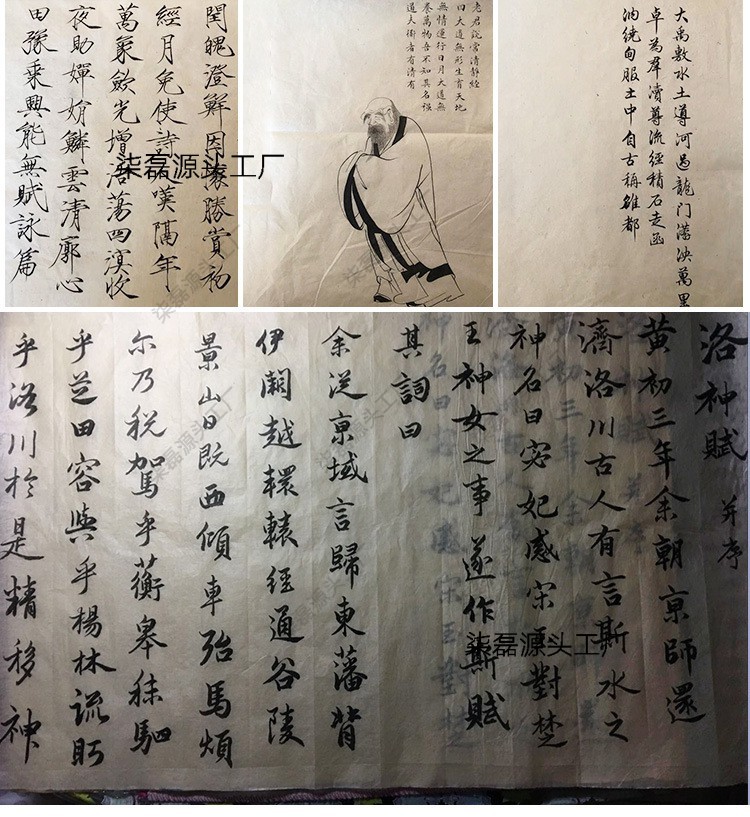 閏魄澄鮮因勝賞初
經月免使詩嘆隔年
萬象斂光增浩蕩四溟收
夜助嬋娟鱗雲清廓心
田豫乘興能無賦詠篇
柒磊源头工厂
柒磊源头工厂
老君說常清靜經
曰大道無形生育天地
無情運行日月大道無
養萬物吾不知其名强
道夫衜者有清有
大禹敷水土導河過龍门漾泱萬里
卓為羣瀆尊流經積石走函
繞甸服土中自古稱雒都
洛神賦 并序
黄初三年余朝京師還
濟洛川古人有言斯水之
神名曰宓妃感宋玉對楚
王神女之事遂作斯賦
其詞曰
余從京域言歸東藩背
伊闕越轘轅經通谷陵
景山日既西傾車殆馬煩
尔乃税駕乎蘅皋秣駟
乎芝田容與乎楊林流眄
乎洛川於是精移神
柒磊源头工厂
柒磊源头工厂
柒磊源头工厂